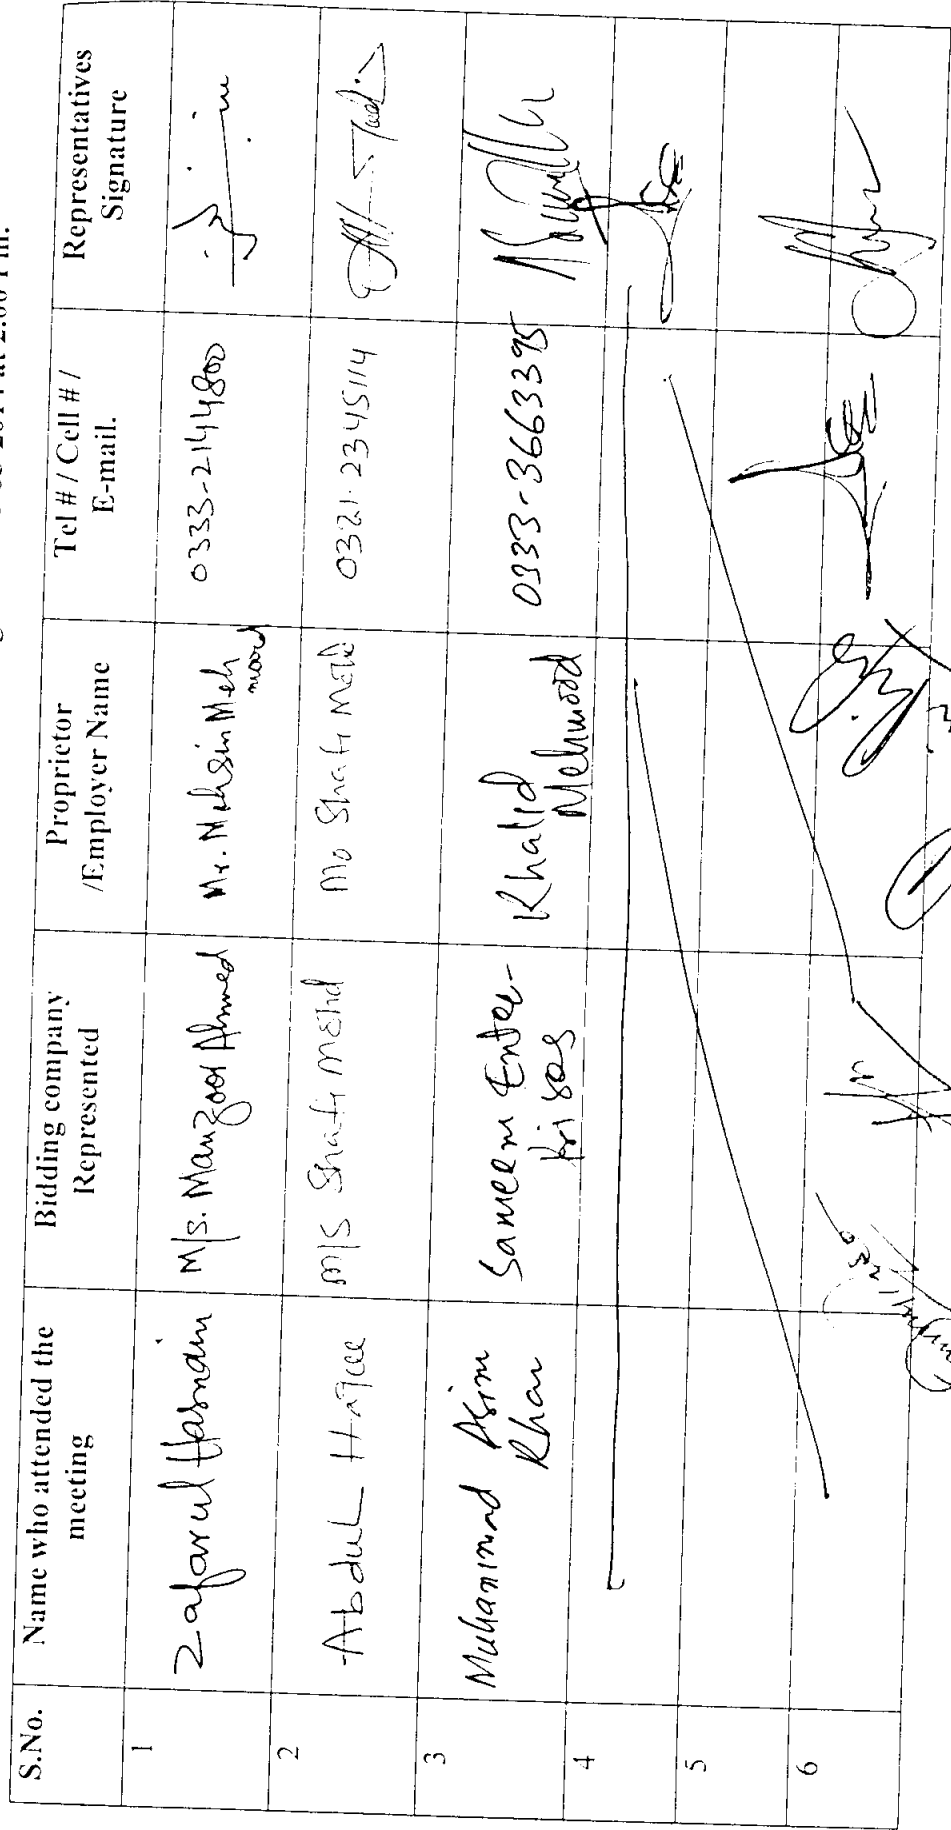 2014 at 2:00 Pm.
S.No. Name who attended the meeting Bidding company Represented Proprietor /Employer Name Tel # / Cell # / E-mail. Representatives Signature
1 Zafarul Hasnain M/s. Manzoor Ahmed Mr. Mohsin Mehmood 0333-2144800
2 Abdul Haqee M/S Shafi Mohd Mo Shafi Mohd 0321-2345114
3 Muhammad Asim Khan Sameem Enter- Khalid Mehmood 0333-3663395
4
5
6